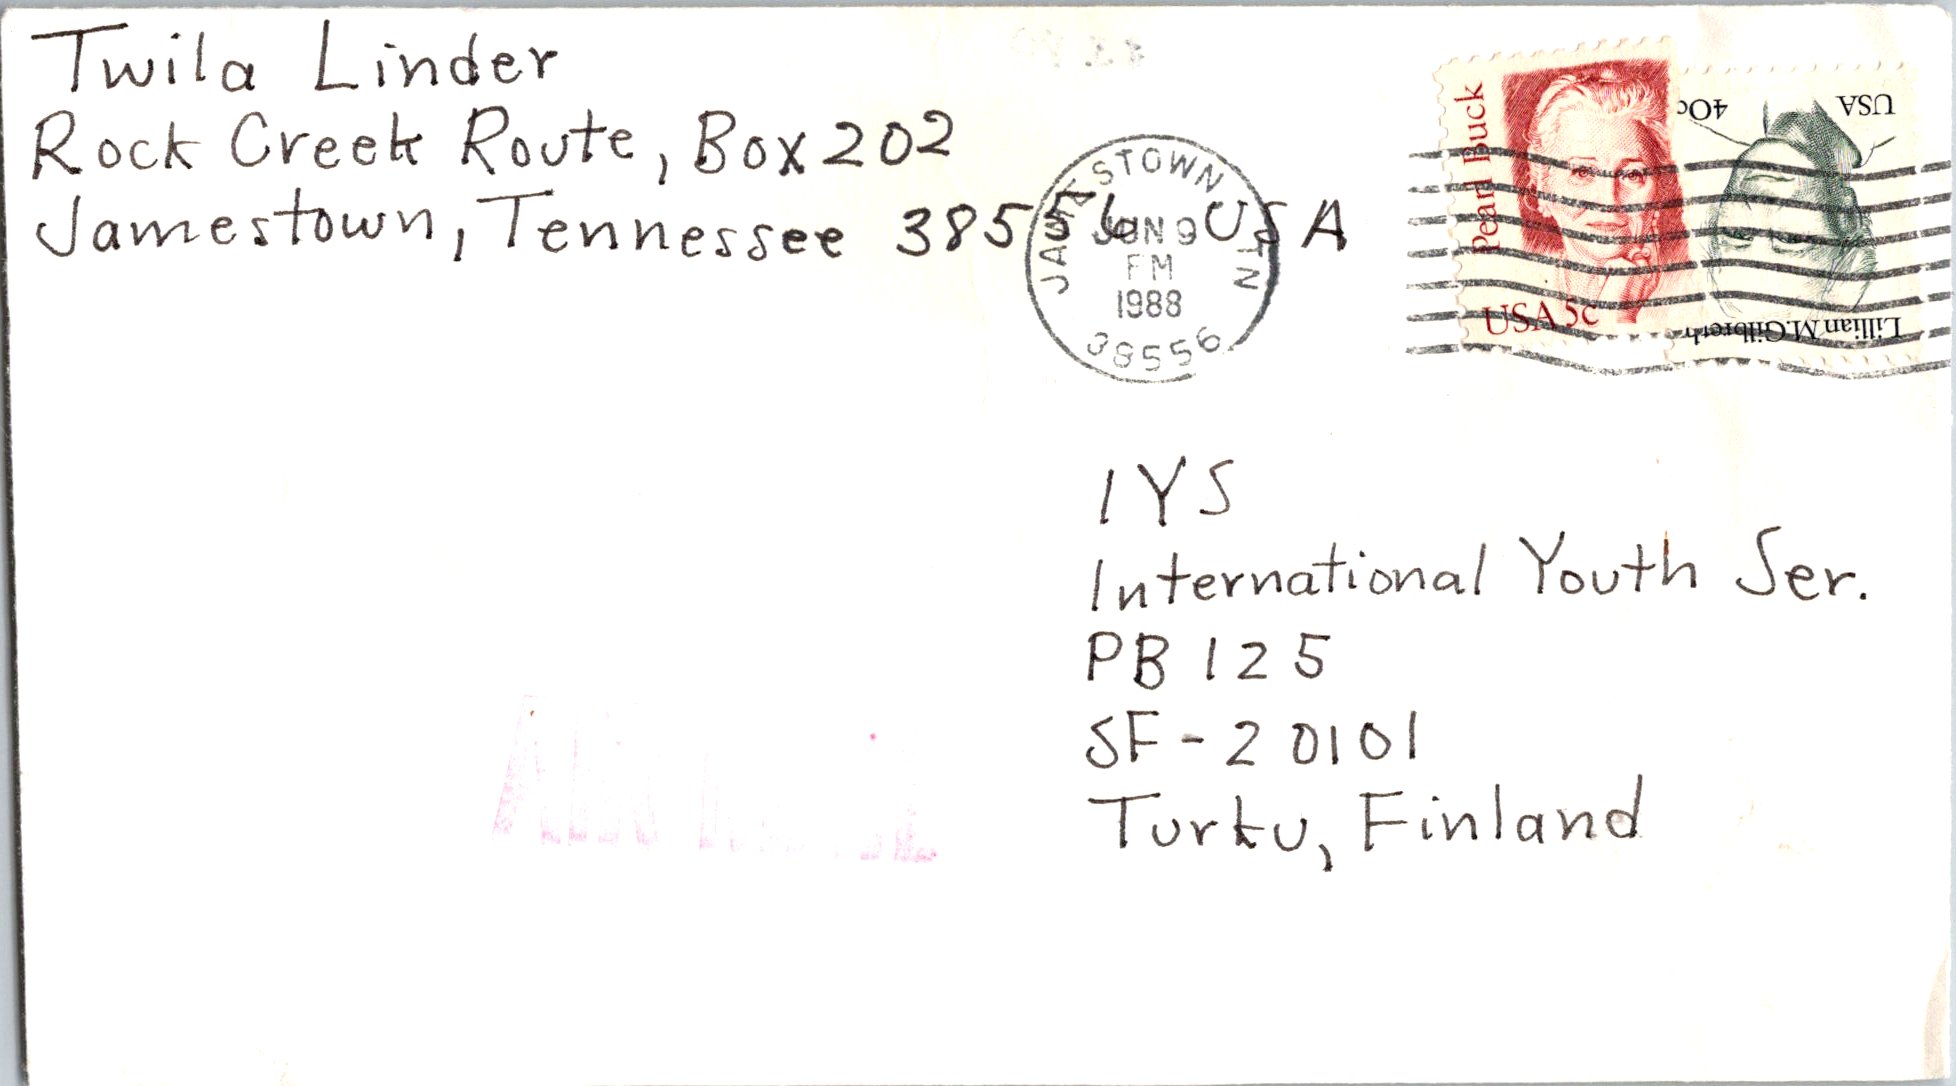 Twila Linder
Rock Creek Route, Box 202
Jamestown, Tennessee 38556 USA
JAMESTOWN TN
JUN 9
PM
1988
38556
Pearl Buck
USA 5c
40c
USA
Lillian M. Gilbreth
IYS
International Youth Ser.
PB 125
SF-20101
Turku, Finland